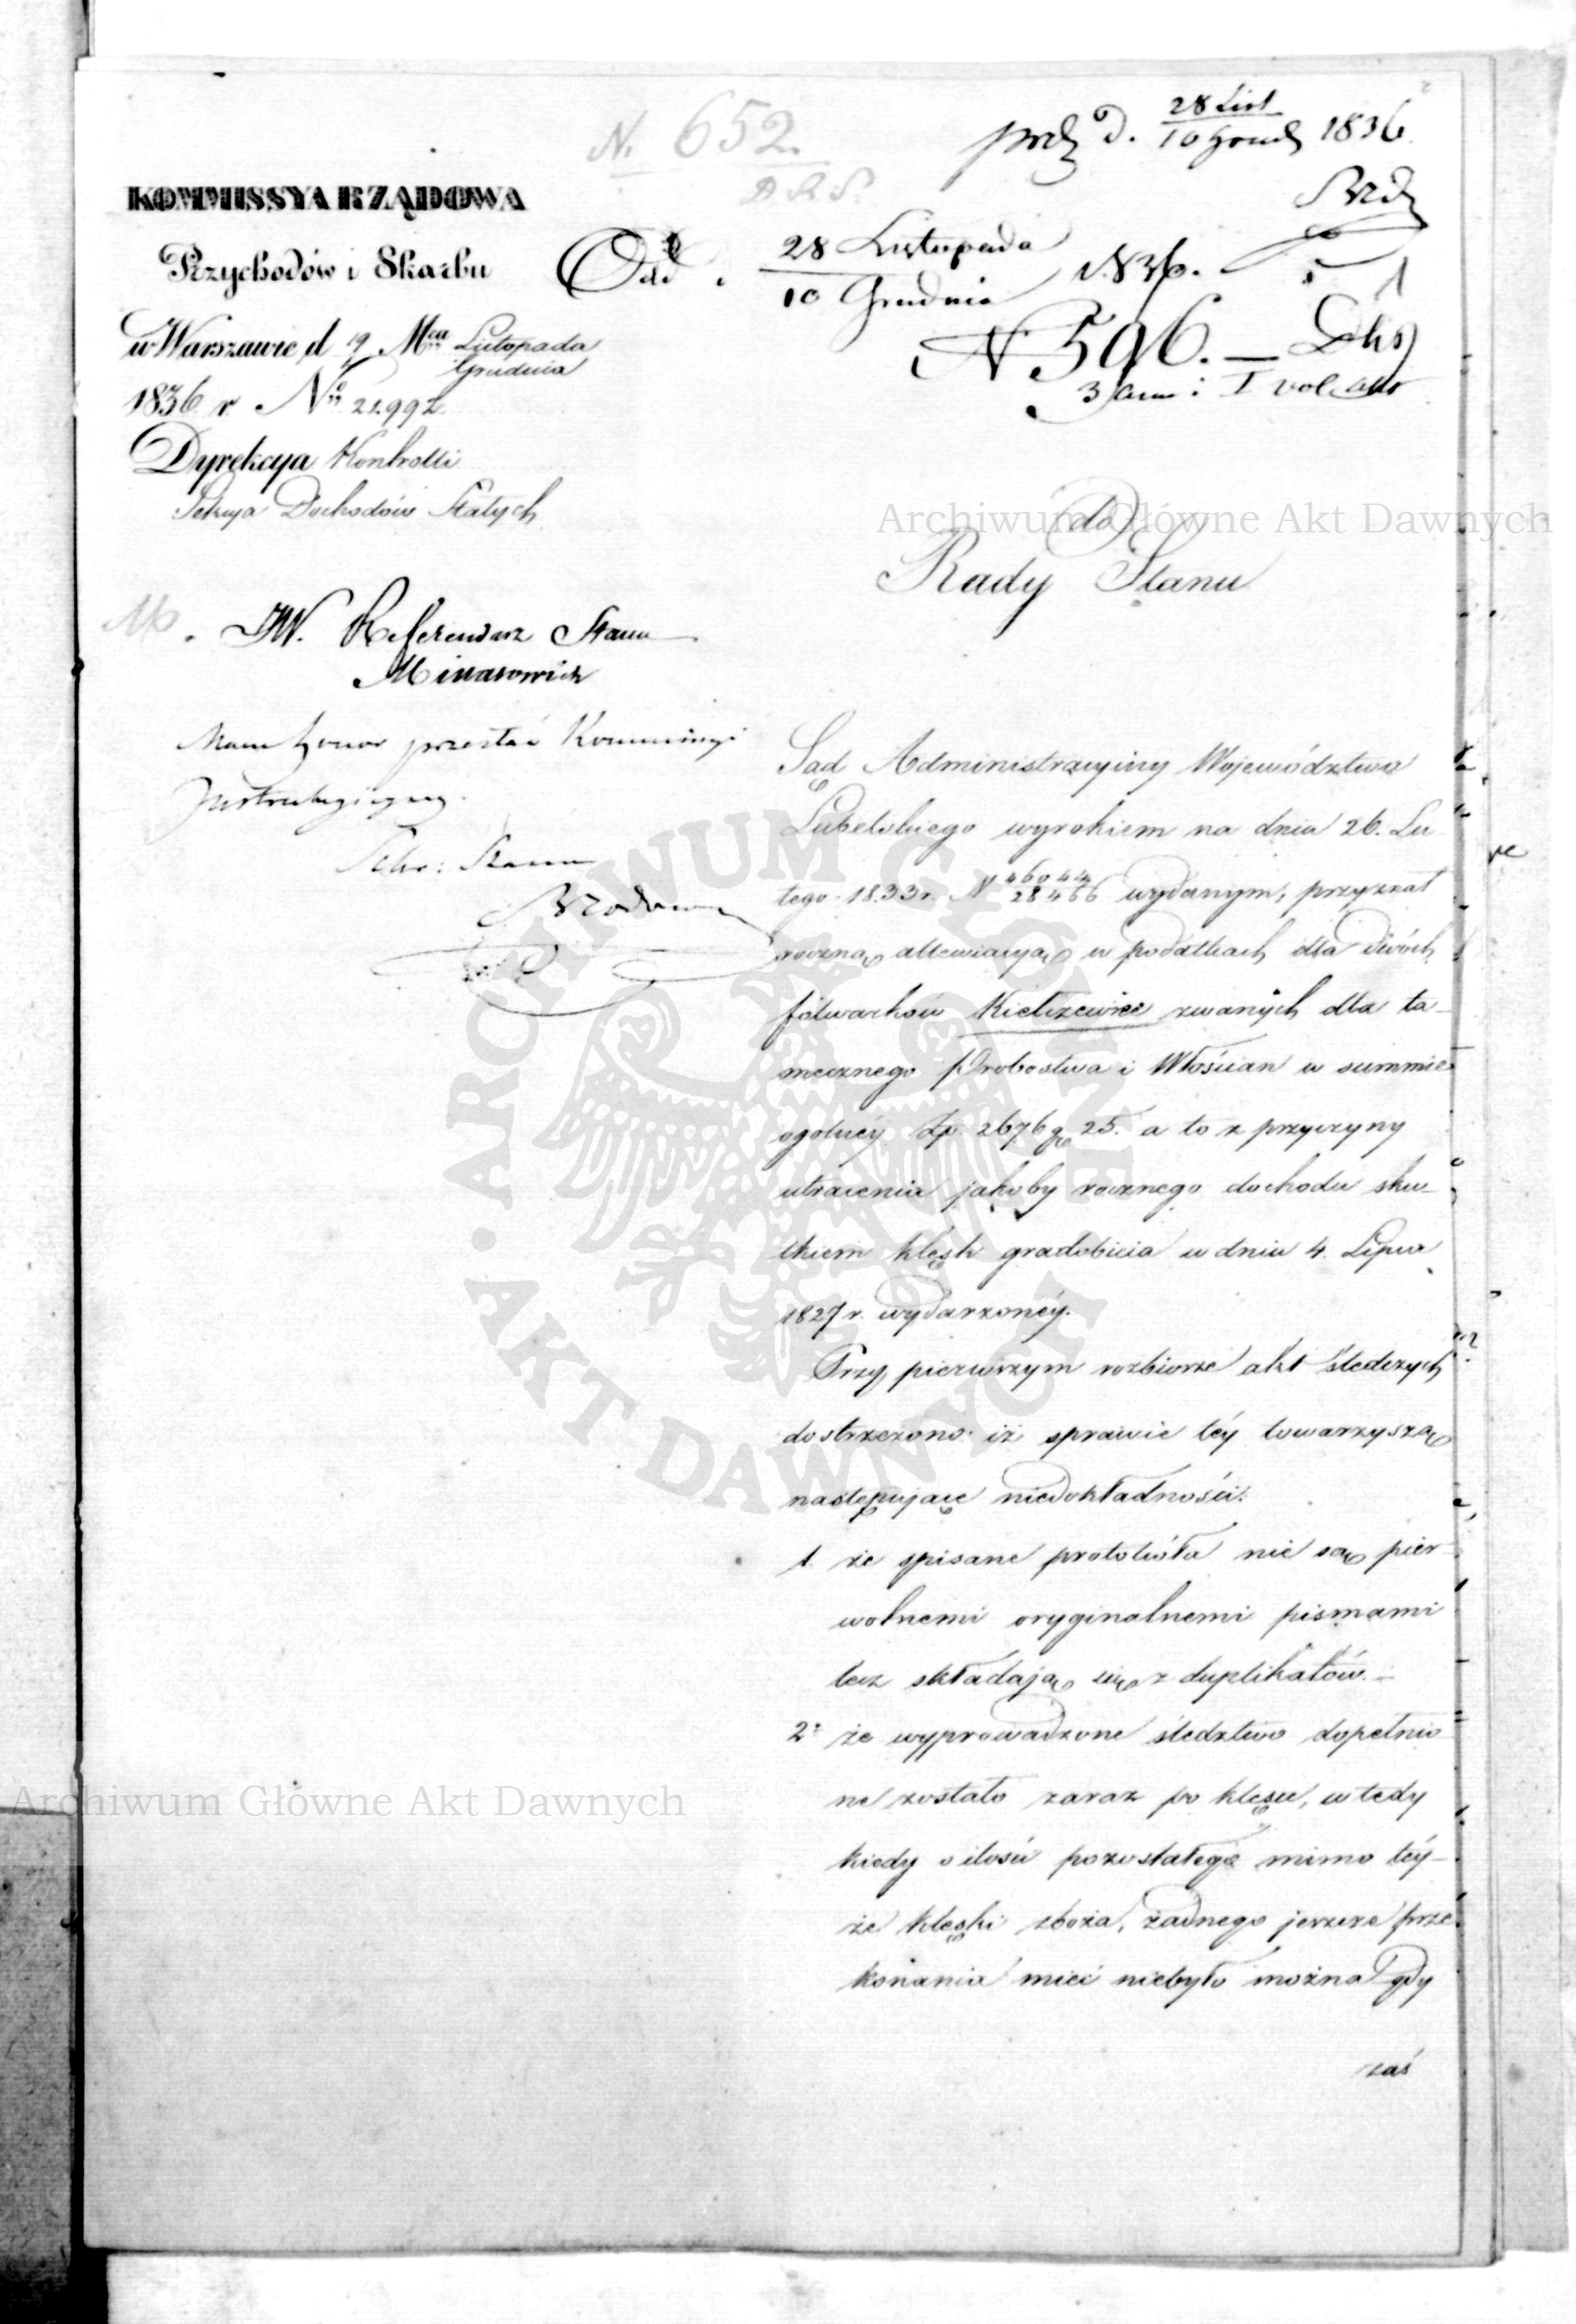 N. 652.
28 List
10 Grud 1836
KOMMISSYA RZĄDOWA
Przychodów i Skarbu
Odd. 28 Listopada
10 Grudnia 1836.
w Warszawie d 19 Mca Listopada
Grudnia
N 596.
1836 r. Nro 21.992
Dyrekcya Kontrolli
Sekcya Dochodów Stałych
do
Rady Stanu
JW. Referendarz Stanu
Minasowicz
Mam honor przesłać Kommissyi
Instrukcyiney.
Sekr: Stanu
Sąd Administracyiny Województwa
Lubelskiego wyrokiem na dniu 26. Lu
tego 1833 r. N 46044
28466 wydanym, przyznał
roczną allewiacyą w podatkach dla dwóch
folwarków Kiełczewice zwanych dla ta
mecznego Probostwa i Włościan w summie
ogolnéy Zp. 2676 gr 25. a to z przyczyny
utracenia jakoby rocznego dochodu sku
tkiem klęsk gradobicia w dniu 4. Lipca
1827 r. wydarzonéy.
Przy pierwszym rozbiorze akt śledczych
dostrzeżono iż sprawie téy towarzyszą
następujące niedokładności:
1. że spisane protokóła nie są pier
wotnemi oryginalnemi pismami
lecz składają się z duplikatów.
2: że wyprowadzone śledztwo dopełnio
ne zostało zaraz po klęsce, wtedy
kiedy o ilości pozostałego mimo téy
że klęski zboża, żadnego jeszcze prze
konania mieć niebyło można gdy
zaś
Archiwum Główne Akt Dawnych
Archiwum Główne Akt Dawnych
ARCHIWUM GŁÓWNE
AKT DAWNYCH